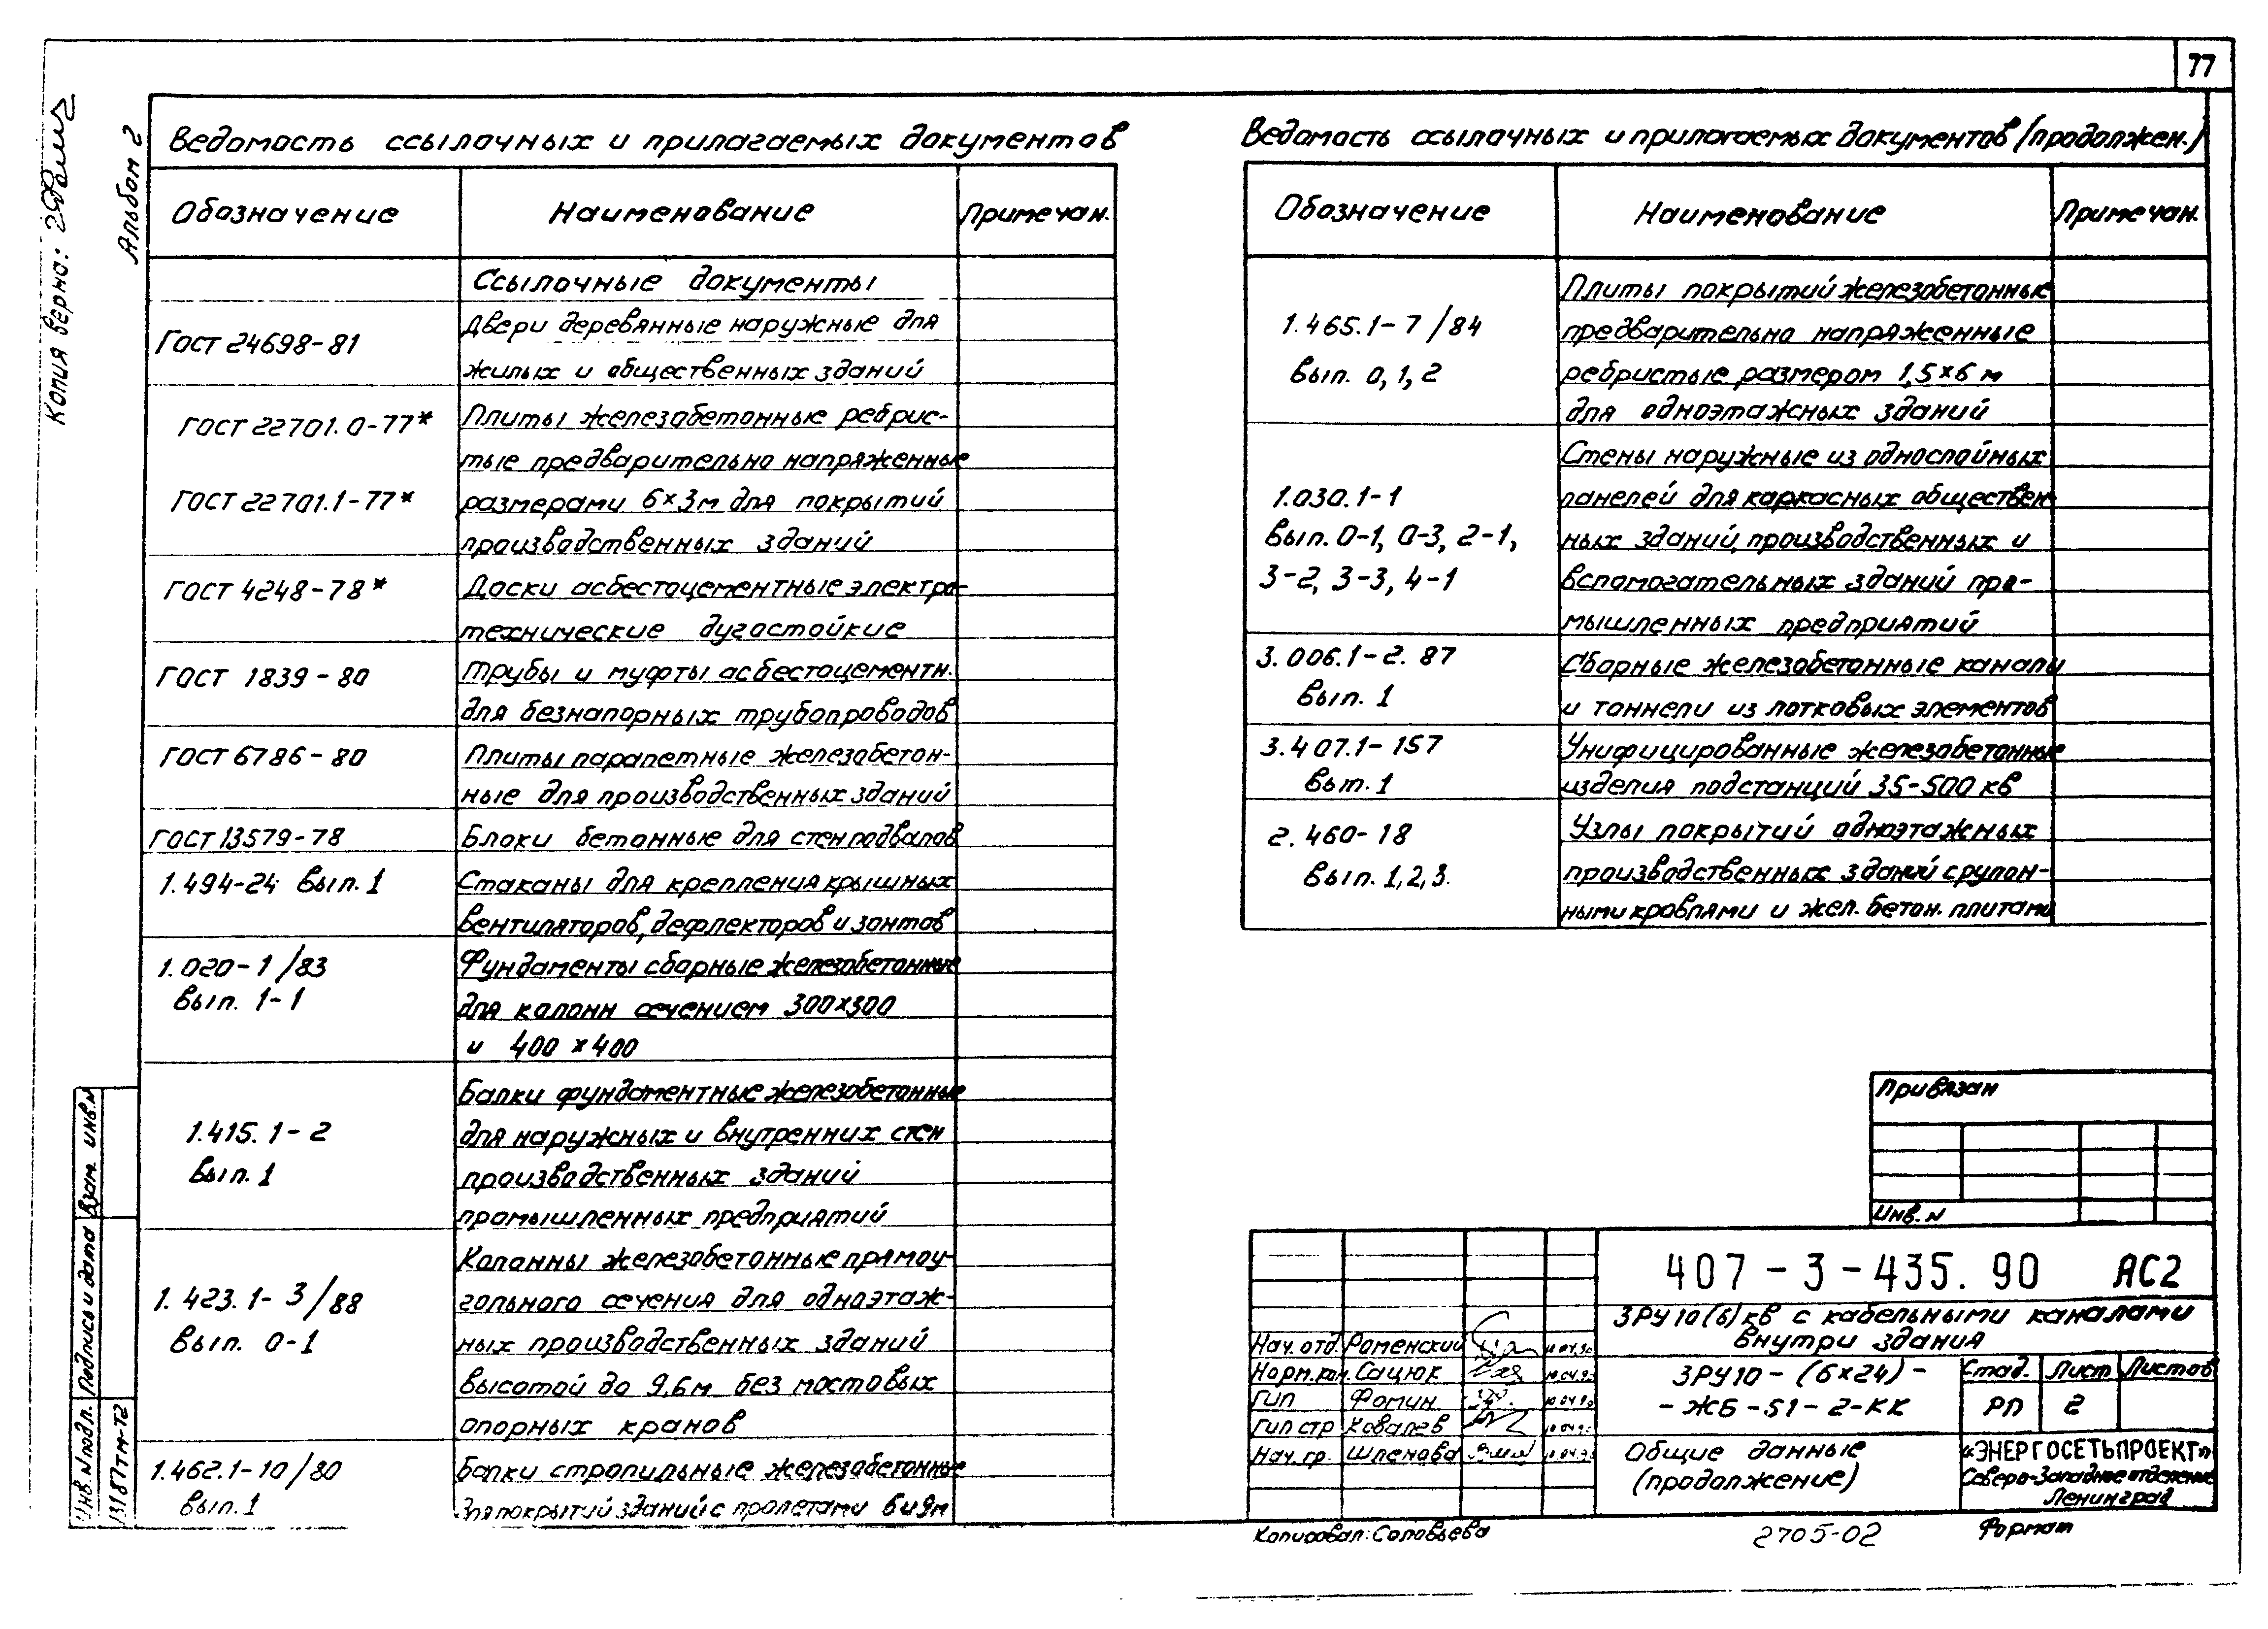 77
Копия верна:
Альбом 2
Ведомость ссылочных и прилагаемых документов
Обозначение Наименование Примечан.
Ссылочные документы
ГОСТ 24698-81 Двери деревянные наружные для
жилых и общественных зданий
ГОСТ 22701.0-77* Плиты железобетонные ребрис-
тые предварительно напряженные
ГОСТ 22701.1-77* размерами 6×3м для покрытий
производственных зданий
ГОСТ 4248-78* Доски асбестоцементные электро-
технические дугостойкие
ГОСТ 1839-80 Трубы и муфты асбестоцементн.
для безнапорных трубопроводов
ГОСТ 6786-80 Плиты парапетные железобетон-
ные для производственных зданий
ГОСТ 13579-78 Блоки бетонные для стен подвалов
1.494-24 Вып.1 Стаканы для крепления крышных
вентиляторов, дефлекторов и зонтов
1.020-1/83 Фундаменты сборные железобетонные
Вып. 1-1 для колонн сечением 300×300
и 400×400
Балки фундаментные железобетонные
1.415.1-2 для наружных и внутренних стен
Вып.1 производственных зданий
промышленных предприятий
Колонны железобетонные прямоу-
1.423.1-3/88 гольного сечения для одноэтаж-
Вып. 0-1 ных производственных зданий
высотой до 9,6м без мостовых
опорных кранов
1.462.1-10/80 Балки стропильные железобетонные
Вып.1 для покрытий зданий с пролетами 6 и 9м
Ведомость ссылочных и прилагаемых документов (продолжен.)
Обозначение Наименование Примечан.
Плиты покрытий железобетонные
1.465.1-7/84 предварительно напряженные
Вып. 0,1,2 ребристые размером 1,5×6 м
для одноэтажных зданий
Стены наружные из однослойных
1.030.1-1 панелей для каркасных обществен-
Вып. 0-1, 0-3, 2-1, ных зданий, производственных и
3-2, 3-3, 4-1 вспомогательных зданий про-
мышленных предприятий
3.006.1-2.87 Сборные железобетонные каналы
Вып. 1 и тоннели из лотковых элементов
3.407.1-157 Унифицированные железобетонные
Вып.1 изделия подстанций 35-500 кв
2.460-18 Узлы покрытий одноэтажных
Вып. 1,2,3. производственных зданий с рулон-
ными кровлями и жел. бетон. плитами
Привязан
Инв. N
407-3-435.90 АС2
ЗРУ 10(6) кв с кабельными каналами
внутри здания
Нач. отд. Роменский 10.04.90
Норм.кон. Сацюк 10.04.90
ГИП Фомин 10.04.90
ГИП стр Ковалев 10.04.90
Нач. гр. Шленова 10.04.90
ЗРУ10-(6×24)-
-ЖБ-51-2-КК
Стад. Лист Листов
РП 2
Общие данные
(продолжение)
«ЭНЕРГОСЕТЬПРОЕКТ»
Северо-Западное отделение
Ленинград
Копировал: Соловьева
2705-02
Формат
Взам. инв. N
Подпись и дата
Инв. N подл.
13187тм-т2